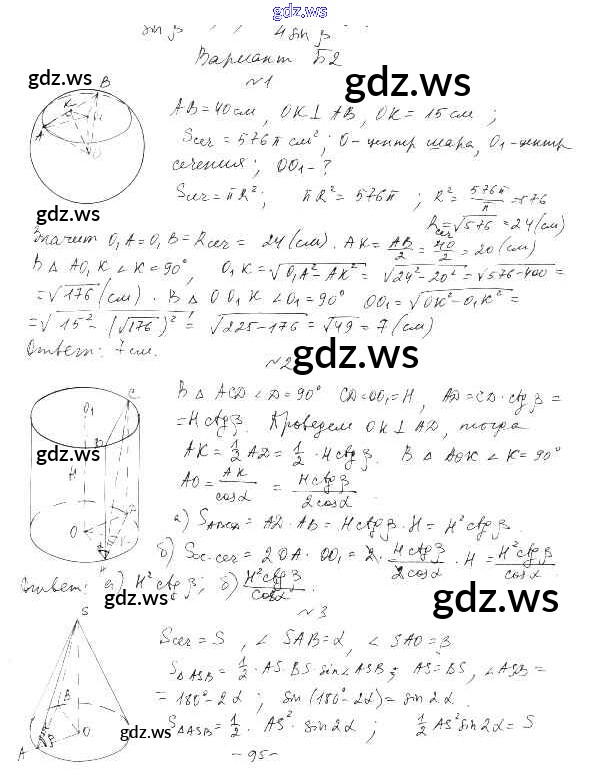 gdz.ws
sin β , , 4 sin β
Вариант Б2
gdz.ws
gdz.ws
№1
AB = 40 см, OK ⊥ AB, OK = 15 см ;
Sсеч = 576π см²; O - центр шара, O₁ - центр
сечения; OO₁ - ?
Sсеч = πR², πR² = 576π ; R² = 576π/π = 576
gdz.ws
Rсеч = √576 = 24 (см)
Значит O₁A = O₁B = Rсеч = 24 (см). AK = AB/2 = 40/2 = 20 (см)
В △ AO₁K ∠K = 90°, O₁K = √O₁A² - AK² = √24² - 20² = √576 - 400 =
= √176 (см) . В △ OO₁K ∠O₁ = 90° OO₁ = √OK² - O₁K² =
= √15² - (√176)² = √225 - 176 = √49 = 7 (см)
Ответ: 7 см.
gdz.ws
№2
В △ ACD ∠D = 90° CD = OO₁ = H, AD = CD · ctg β =
= H ctg β. Проведем OK ⊥ AD, тогда
gdz.ws
AK = 1/2 AD = 1/2 · H ctg β. В △ AOK ∠K = 90°
AO = AK/cos α = H ctg β/2 cos α
а) S = AD · AB = H ctg β · H = H² ctg β.
б) Sос.сеч = 2OA · OO₁ = 2 · H ctg β/2 cos α · H = H² ctg β/cos α
Ответ: а) H² ctg β; б) H² ctg β/cos α
gdz.ws
gdz.ws
№3
Sсеч = S , ∠ SAB = α, ∠ SAO = β
S△ASB = 1/2 · AS · BS · sin ∠ASB ; AS = BS, ∠ASB =
= 180° - 2α ; sin (180° - 2α) = sin 2α .
S△ASB = 1/2 · AS² · sin 2α ; 1/2 AS² sin 2α = S
- 95 -
gdz.ws